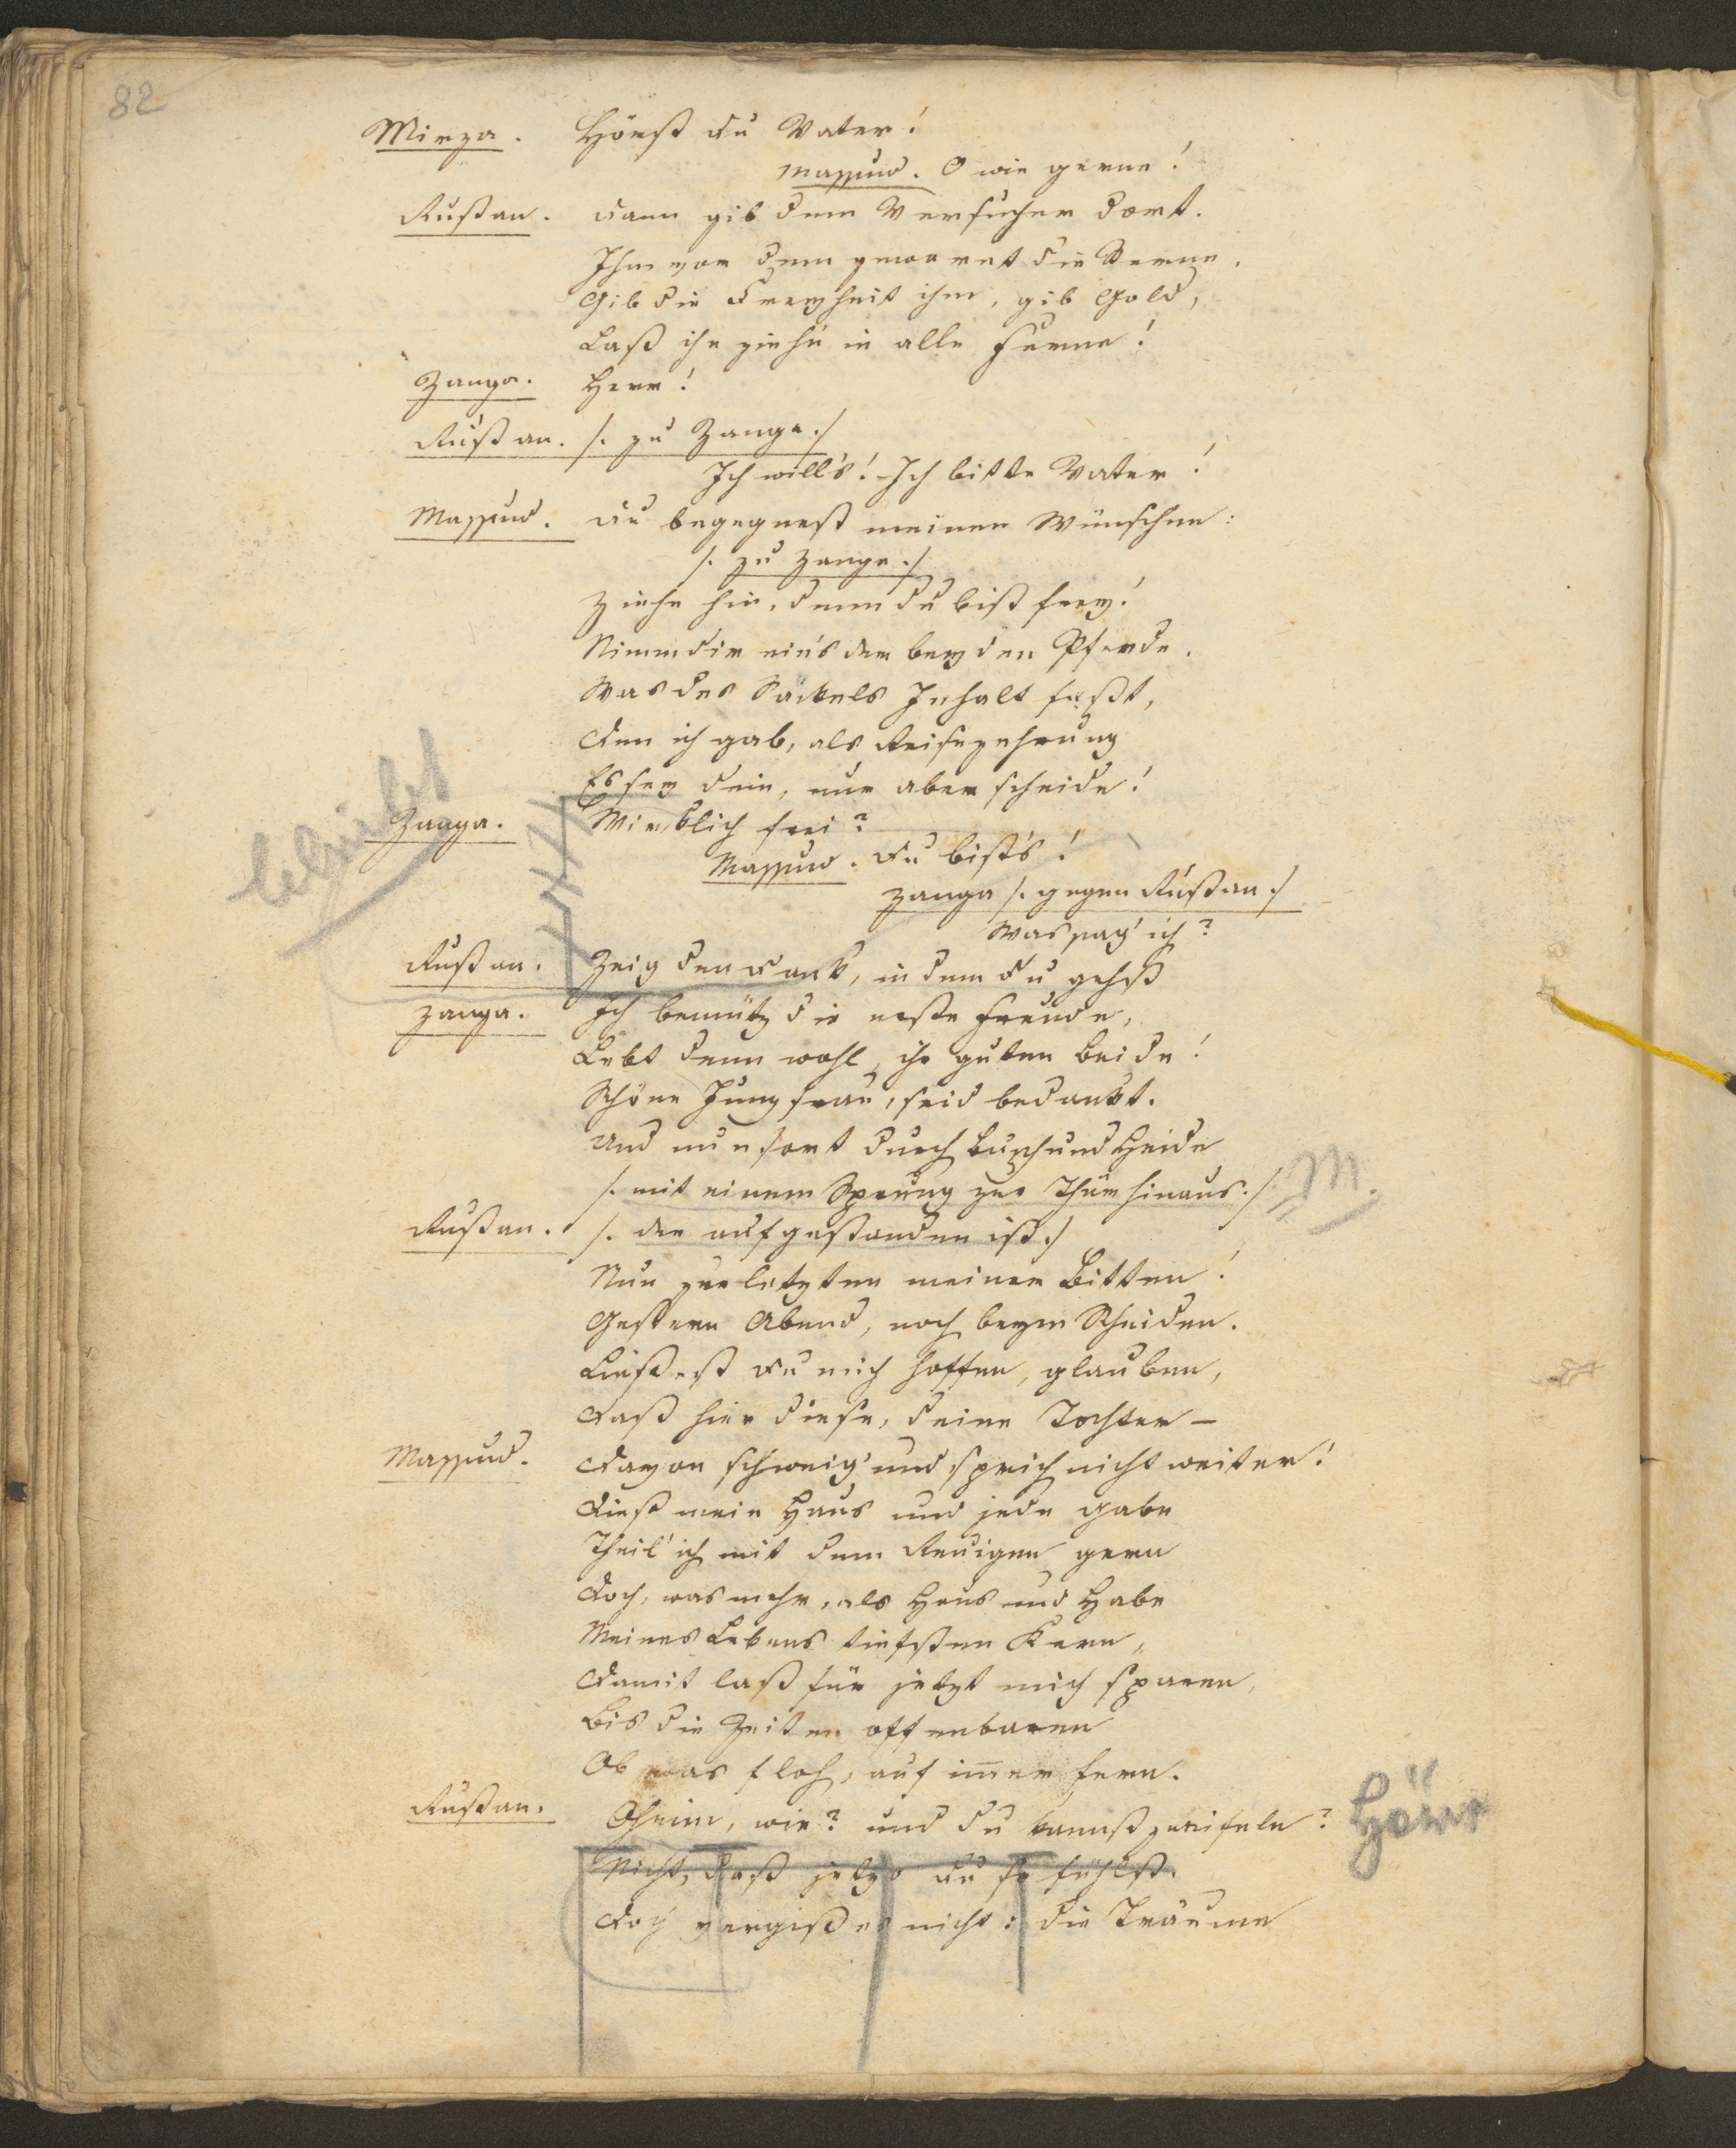 82
Mirza. Hörst du Vater!
Massud. O wie gerne!
Rustan. Dann gib dem Versucher dort.
Ihm vor dem gewarnt die Sterne.
Gib die Freyheit ihm, gib Gold,
Laß ihn ziehn in alle Ferne!
Zanga. Herr!
Rustan. /. zu Zanga ./
Ich will's! Ich bitte Vater!
Massud. Du begegnest meinen Wünschen:
/. zu Zanga ./
Ziehe hin, denn du bist frey!
Nimm dir eins der beyden Pferde.
Was des Säckels Inhalt faßt,
Den ich gab, als Reisezehrung
Es sey dein, nur aber scheide!
Zanga. Wirklich frei?
Massud. Du bists!
Zanga /. gegen Rustan ./
Was sag' ich?
Rustan. Zeig den Dank, indem du gehst
Zanga. Ich benütz die erste Freude,
Lebt denn wohl, ihr guten beide!
Schöne Jungfrau, seid bedankt.
Und nun fort durch Busch und Heide
/. mit einem Sprung zur Thür hinaus. /
M.
Rustan. /. der aufgestanden ist ./
Nun zur letzten meiner Bitten!
Gestern Abend, noch beym Scheiden.
Ließest du mich hoffen, glauben,
Daß hier diese, deine Tochter –
Massud. Davon schweig' und sprich nicht weiter!
Dieß mein Haus und jede Gabe
Theil' ich mit dem Reuigen gern
Doch, was mehr, als Haus und Habe
Meines Lebens tiefsten Kern,
Damit laß für jetzt mich sparen,
Bis die Zeiten offenbaren
Ob was floh, auf im̅er fern.
Rustan. Oheim, wie? und du kannst zweifeln?
Nicht, daß jetzo du so fühlst.
Doch vergiß es nicht: die Träume